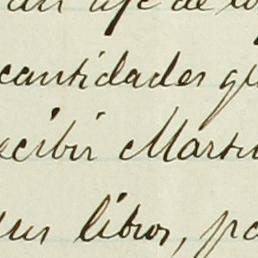 de lo
cantidades qu
ecibir Marti
sus libros, po